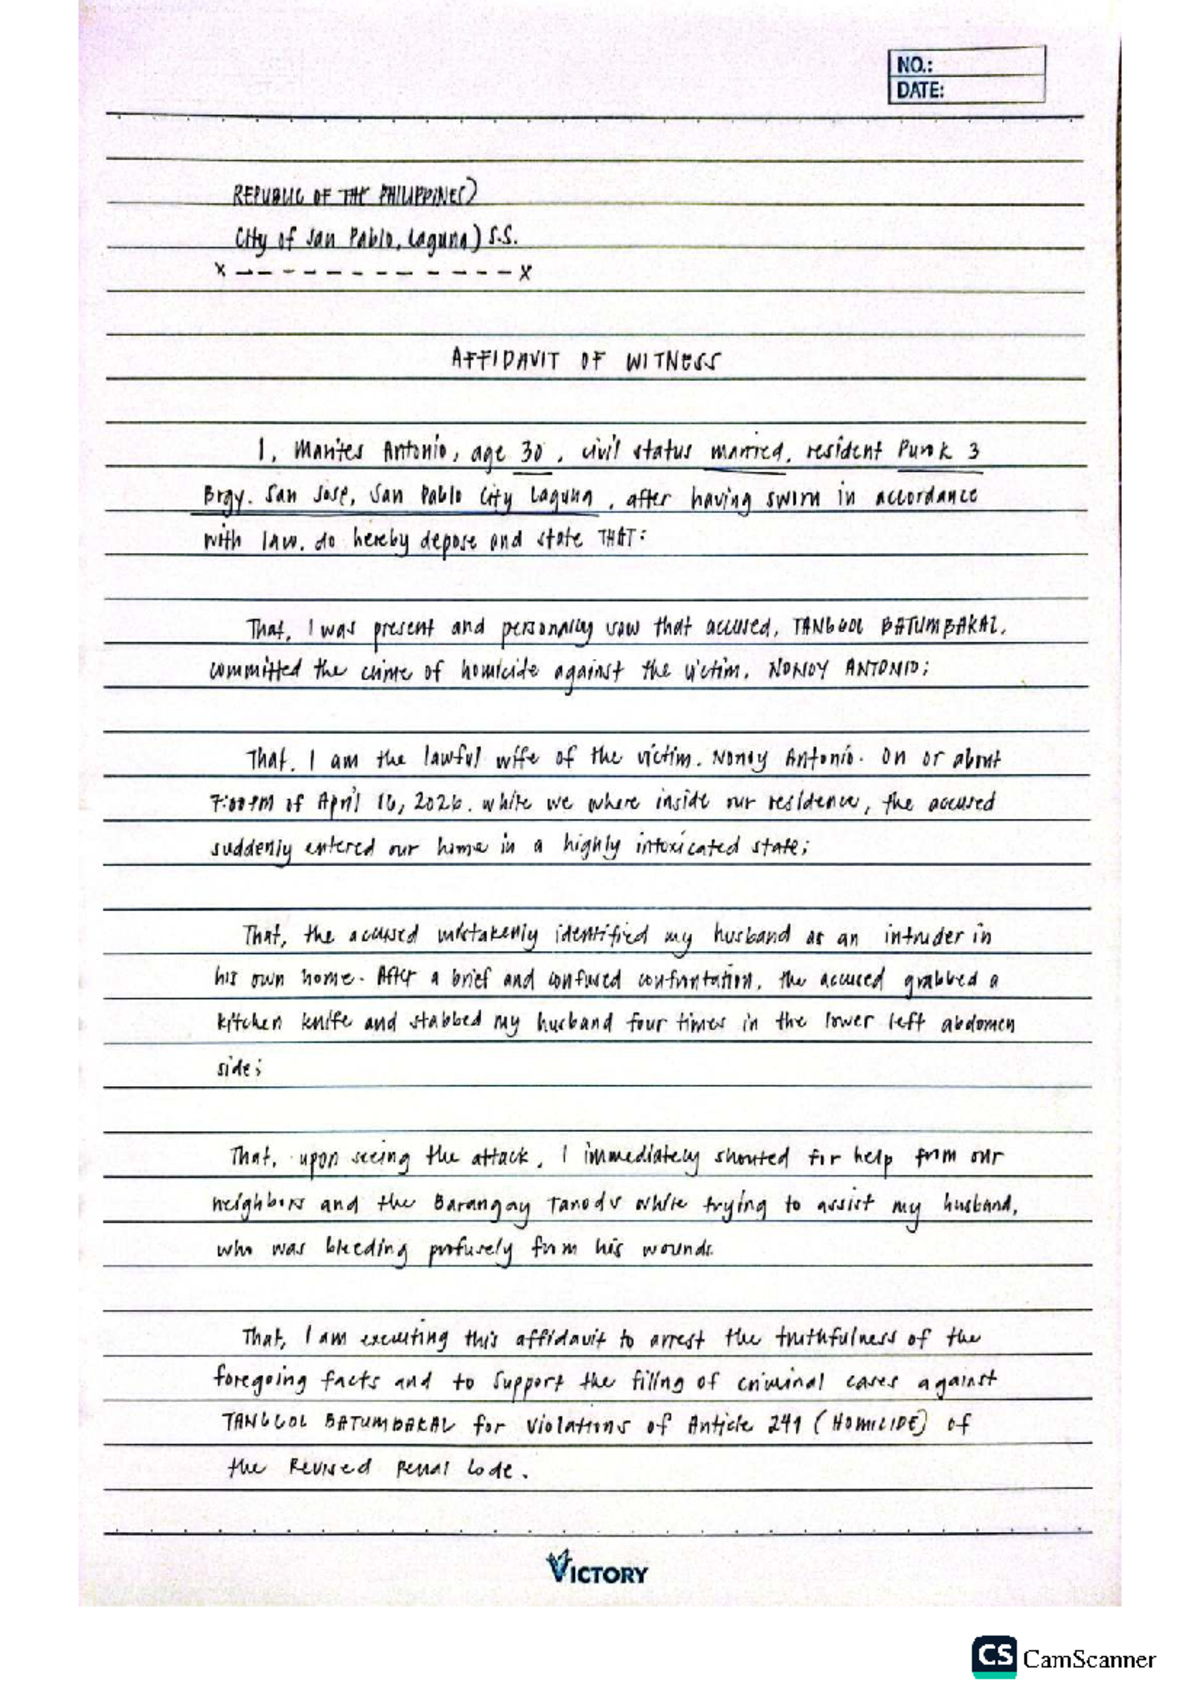 NO.:
DATE:
REPUBLIC OF THE PHILIPPINES)
City of San Pablo, Laguna) S.S.
x - - - - - - - - - - - - x
AFFIDAVIT OF WITNESS
I, Marites Antonio, age 30, civil status married, resident Purok 3
Brgy. San Jose, San Pablo City Laguna, after having sworn in accordance
with law, do hereby depose and state THAT:
That, I was present and personally saw that accused, TANGGOL BATUMBAKAL,
committed the crime of homicide against the victim, NONOY ANTONIO;
That, I am the lawful wife of the victim, Nonoy Antonio. On or about
7:00PM of April 16, 2026. while we where inside our residence, the accused
suddenly entered our home in a highly intoxicated state;
That, the accused mistakenly identified my husband as an intruder in
his own home. After a brief and confused confrontation, the accused grabbed a
kitchen knife and stabbed my husband four times in the lower left abdomen
side;
That, upon seeing the attack, I immediately shouted for help from our
neighbors and the Barangay Tanods while trying to assist my husband,
who was bleeding profusely from his wounds.
That, I am executing this affidavit to arrest the truthfulness of the
foregoing facts and to support the filing of criminal cases against
TANGGOL BATUMBAKAL for violations of Article 249 (HOMICIDE) of
the Revised Penal Code.
VICTORY
CS CamScanner